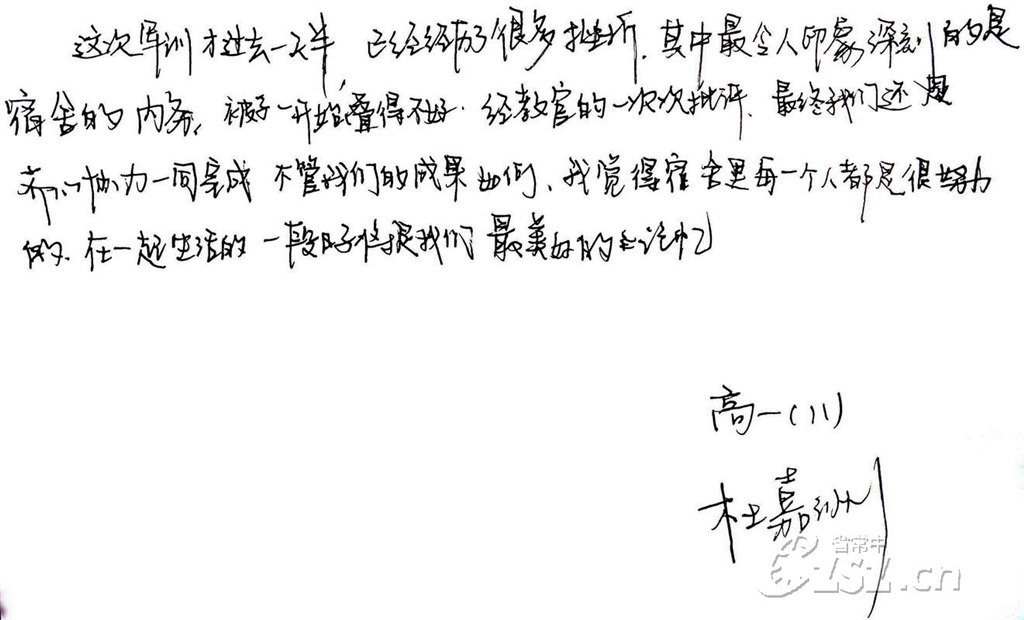 这次军训才过去一天半，已经经历了很多挫折，其中最令人印象深刻的是
宿舍的内务，被子一开始叠得不好，经教官的一次次批评，最终我们还是
齐心协力一同完成 不管我们的成果如何，我觉得宿舍里每一个人都是很努力
的，在一起生活的一段日子将是我们最美好的记忆
高一(11)
杜嘉
省常中
ZSZ.cn